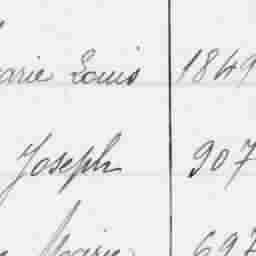 arie Louis 1849
Joseph 907
Marie 697